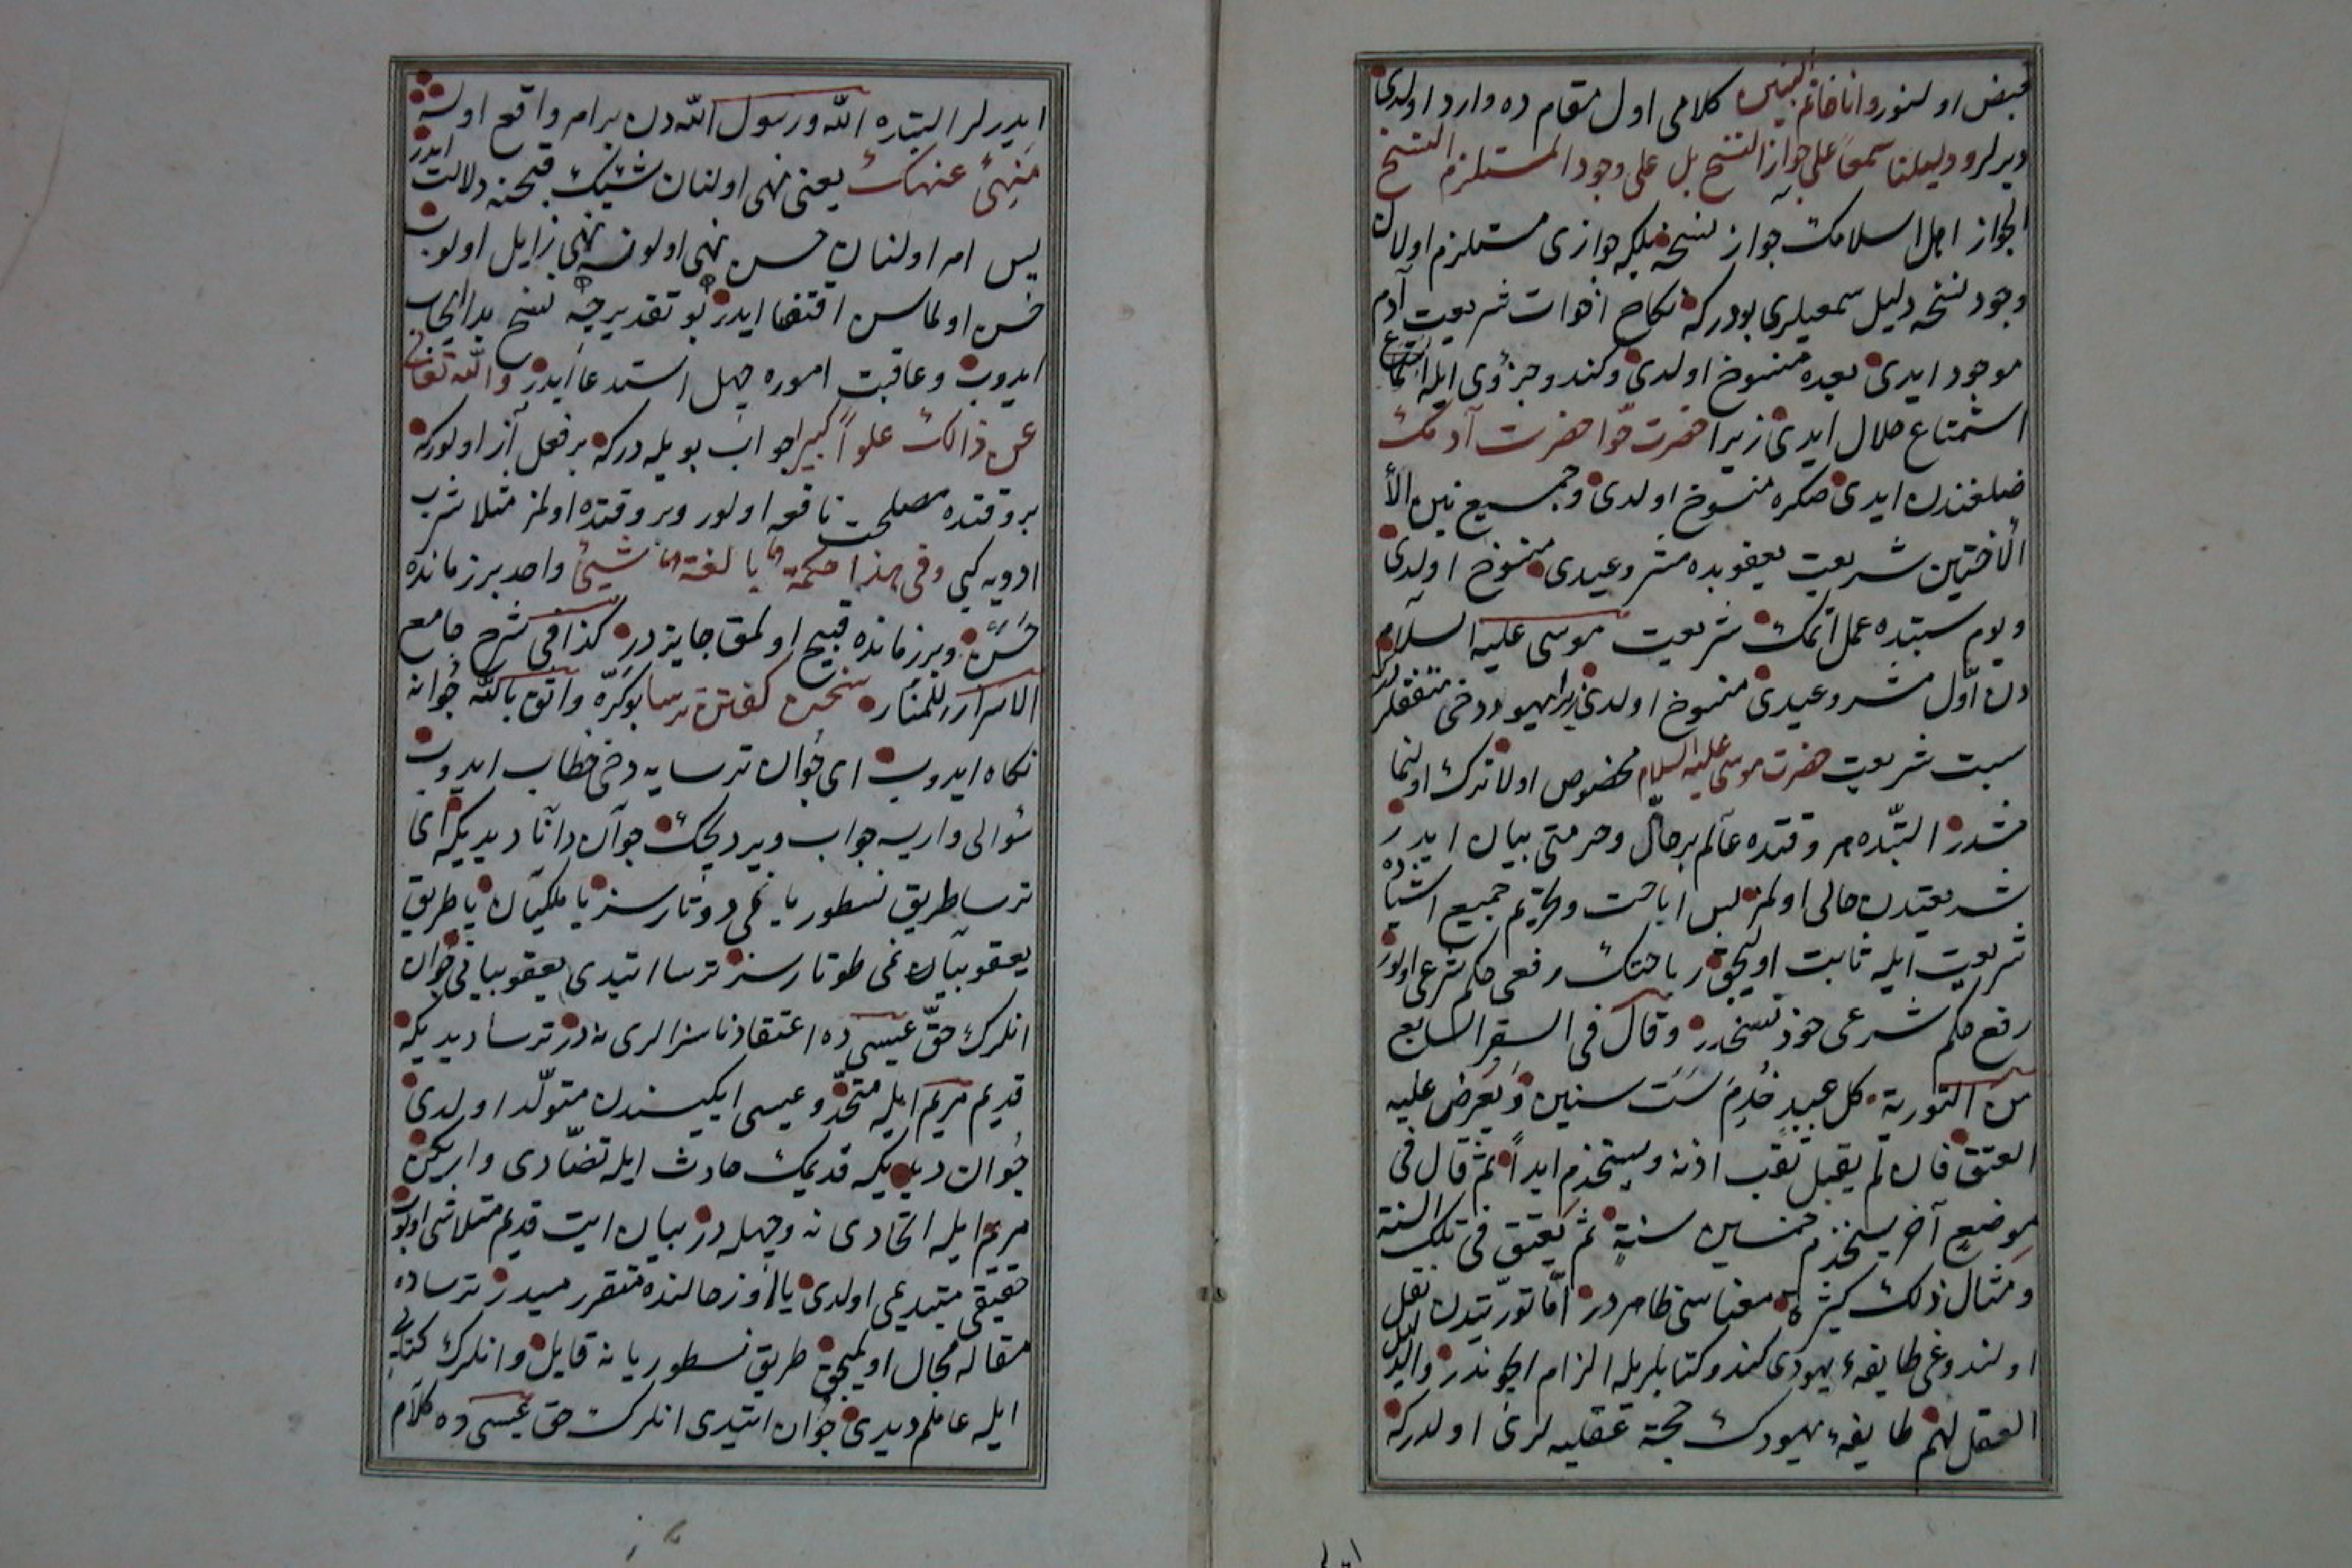 قبض اولنور وانا خاتم النبيين كلامى اول مقام ده وارد اولدى
ديرلر ودليلنا سمعاً على جواز النسخ بل على وجود المستلزم النسخ
الجواز اهل اسلامك جواز نسخه بلكه جوازى مستلزم اولان
وجود نسخه دليل سمعيلرى بودركه نكاح اخوات شريعت آدم
موجود ايدى بعده منسوخ اولدى وكندو جزؤى ايله
استمتاع حلال ايدى زيرا حضرت حوّا حضرت آدمك
ضلعندن ايدى صكره منسوخ اولدى وجميع بين الأ
الأختين شريعت يعقوبده مشروعيدى منسوخ اولدى
ويوم سبتده عمل اتمك شريعت موسى عليه السلام
دن اوّل مشروعيدى منسوخ اولدى زيرا يهود دخى متفقلر
سبت شريعت حضرت موسى عليه السلام مخصوص اولا ترك اولنما
مشدر البتّده هر وقتده عالم بر حالّ وحرمتى بيان ايدر
شريعتدن خالى اولمز پس اباحت وتحريم جميع اشياده
شريعت ايله ثابت اوليجق اباحتك رفعى حكم شرعى اولور
رفع حكم شرعى خود نسخدر وقال فى السفر السابع
من التورية كل عبيدٍ خُدِمَ سَتَ سنين وَيُعرَض عليه
العتق فان لم يقبل ثقب اذنه ويستخدم ابداً ثم قال فى
موضعٍ آخر يستخدم خمسين سنةٍ ثم يعتق فى تلك السنة
ومثال ذلك كثيرة معناسى ظاهر در امّا توريتدن نقل
اولندوغى طايفهء يهودى كندو كتابلريله الزام ايچوندر والدليل
العقل لهم طايفهء يهودك حجة عقليه لرى اولدركه
ايديرلر البتده الله ورسول الله دن بر امر واقع اولسه
مَنهِىُ عنهك يعنى نهى اولنان شيئك قبحنه دلالت ايدر
پس امر اولنان حسن نهى اولونسه نهى زايل اولوب
حسن اولماسن اقتضا ايدر بو تقديرجه نسخ بدا ايجاب
ايدوب وعاقبت اموره جهل استدعا ايدر والله تعالى
عن ذالك علواً كبيرا جواب بويله دركه بر فعل آز اولوركه
بر وقتده مصلحت نافعه اولور وبر وقتده اولمز مثلا شرب
ادويه كبى وفى هذا حكمة بالغة شيئ واحد بر زمانده
حَسَن وبر زمانده قبيح اولمق جايزدر كذا فى شرح جامع
الاسرار للمنار سخن كفتن ترسا بو كرّه واثق بالله جُوانه
نكاه ايدوب اى جُوان ترسايه دخى خطاب ايدوب
سؤالى واريسه جواب ويرديجك جوان دانا ديديكه اى
ترسا طريق نسطوريا نمى دوتارسز يا ملكيان يا طريق
يعقوبيان نمى طوتارسز ترسا ايتدى يعقوبيانى جُوان
انلرك حقّ عيسى ده اعتقاد ناسزالرى نه در ترسا ديديكه
قديم مريم ايله متحدّ وعيسى ايكيسندن متولّد اولدى
جُوان ديديكه قديمك حادث ايله تضّادى واريكن
مريم ايله اتحادى نه وجهله در بيان ايت قديم متلاشى اولوب
حقيقى متبدّل مى اولدى يا اوز حالنده متقرر ميدر ترساده
مقاله مجال اولميجق طريق نسطوريا نه قايل وانلرك كتابى
ايله عاملم ديدى جُوان ايتدى انلرك حق عيسى ده كلام